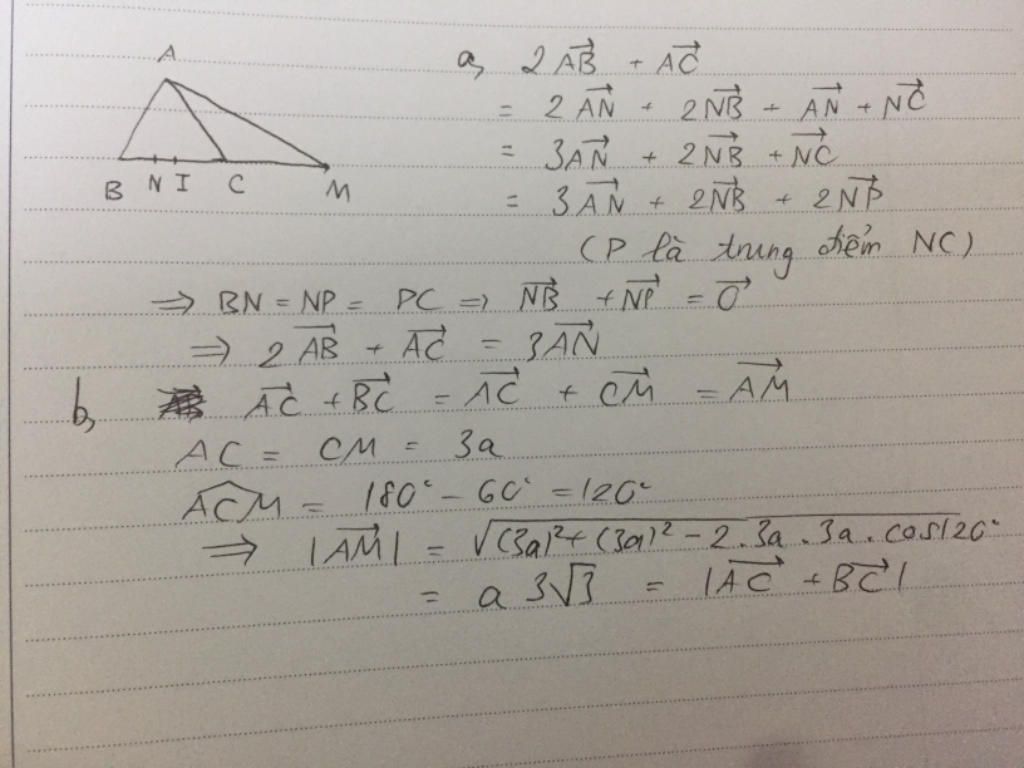 A
B N I C M
a, 2\overrightarrow{AB} + \overrightarrow{AC}
= 2\overrightarrow{AN} + 2\overrightarrow{NB} + \overrightarrow{AN} + \overrightarrow{NC}
= 3\overrightarrow{AN} + 2\overrightarrow{NB} + \overrightarrow{NC}
= 3\overrightarrow{AN} + 2\overrightarrow{NB} + 2\overrightarrow{NP}
(P là trung điểm NC)
⇒ BN = NP = PC ⇒ \overrightarrow{NB} + \overrightarrow{NP} = \overrightarrow{O}
⇒ 2\overrightarrow{AB} + \overrightarrow{AC} = 3\overrightarrow{AN}
b, \overrightarrow{AC} + \overrightarrow{BC} = \overrightarrow{AC} + \overrightarrow{CM} = \overrightarrow{AM}
AC = CM = 3a
\widehat{ACM} = 180° - 60° = 120°
⇒ |\overrightarrow{AM}| = \sqrt{(3a)^2 + (3a)^2 - 2.3a.3a.cos120°}
= a 3√3 = |\overrightarrow{AC} + \overrightarrow{BC}|